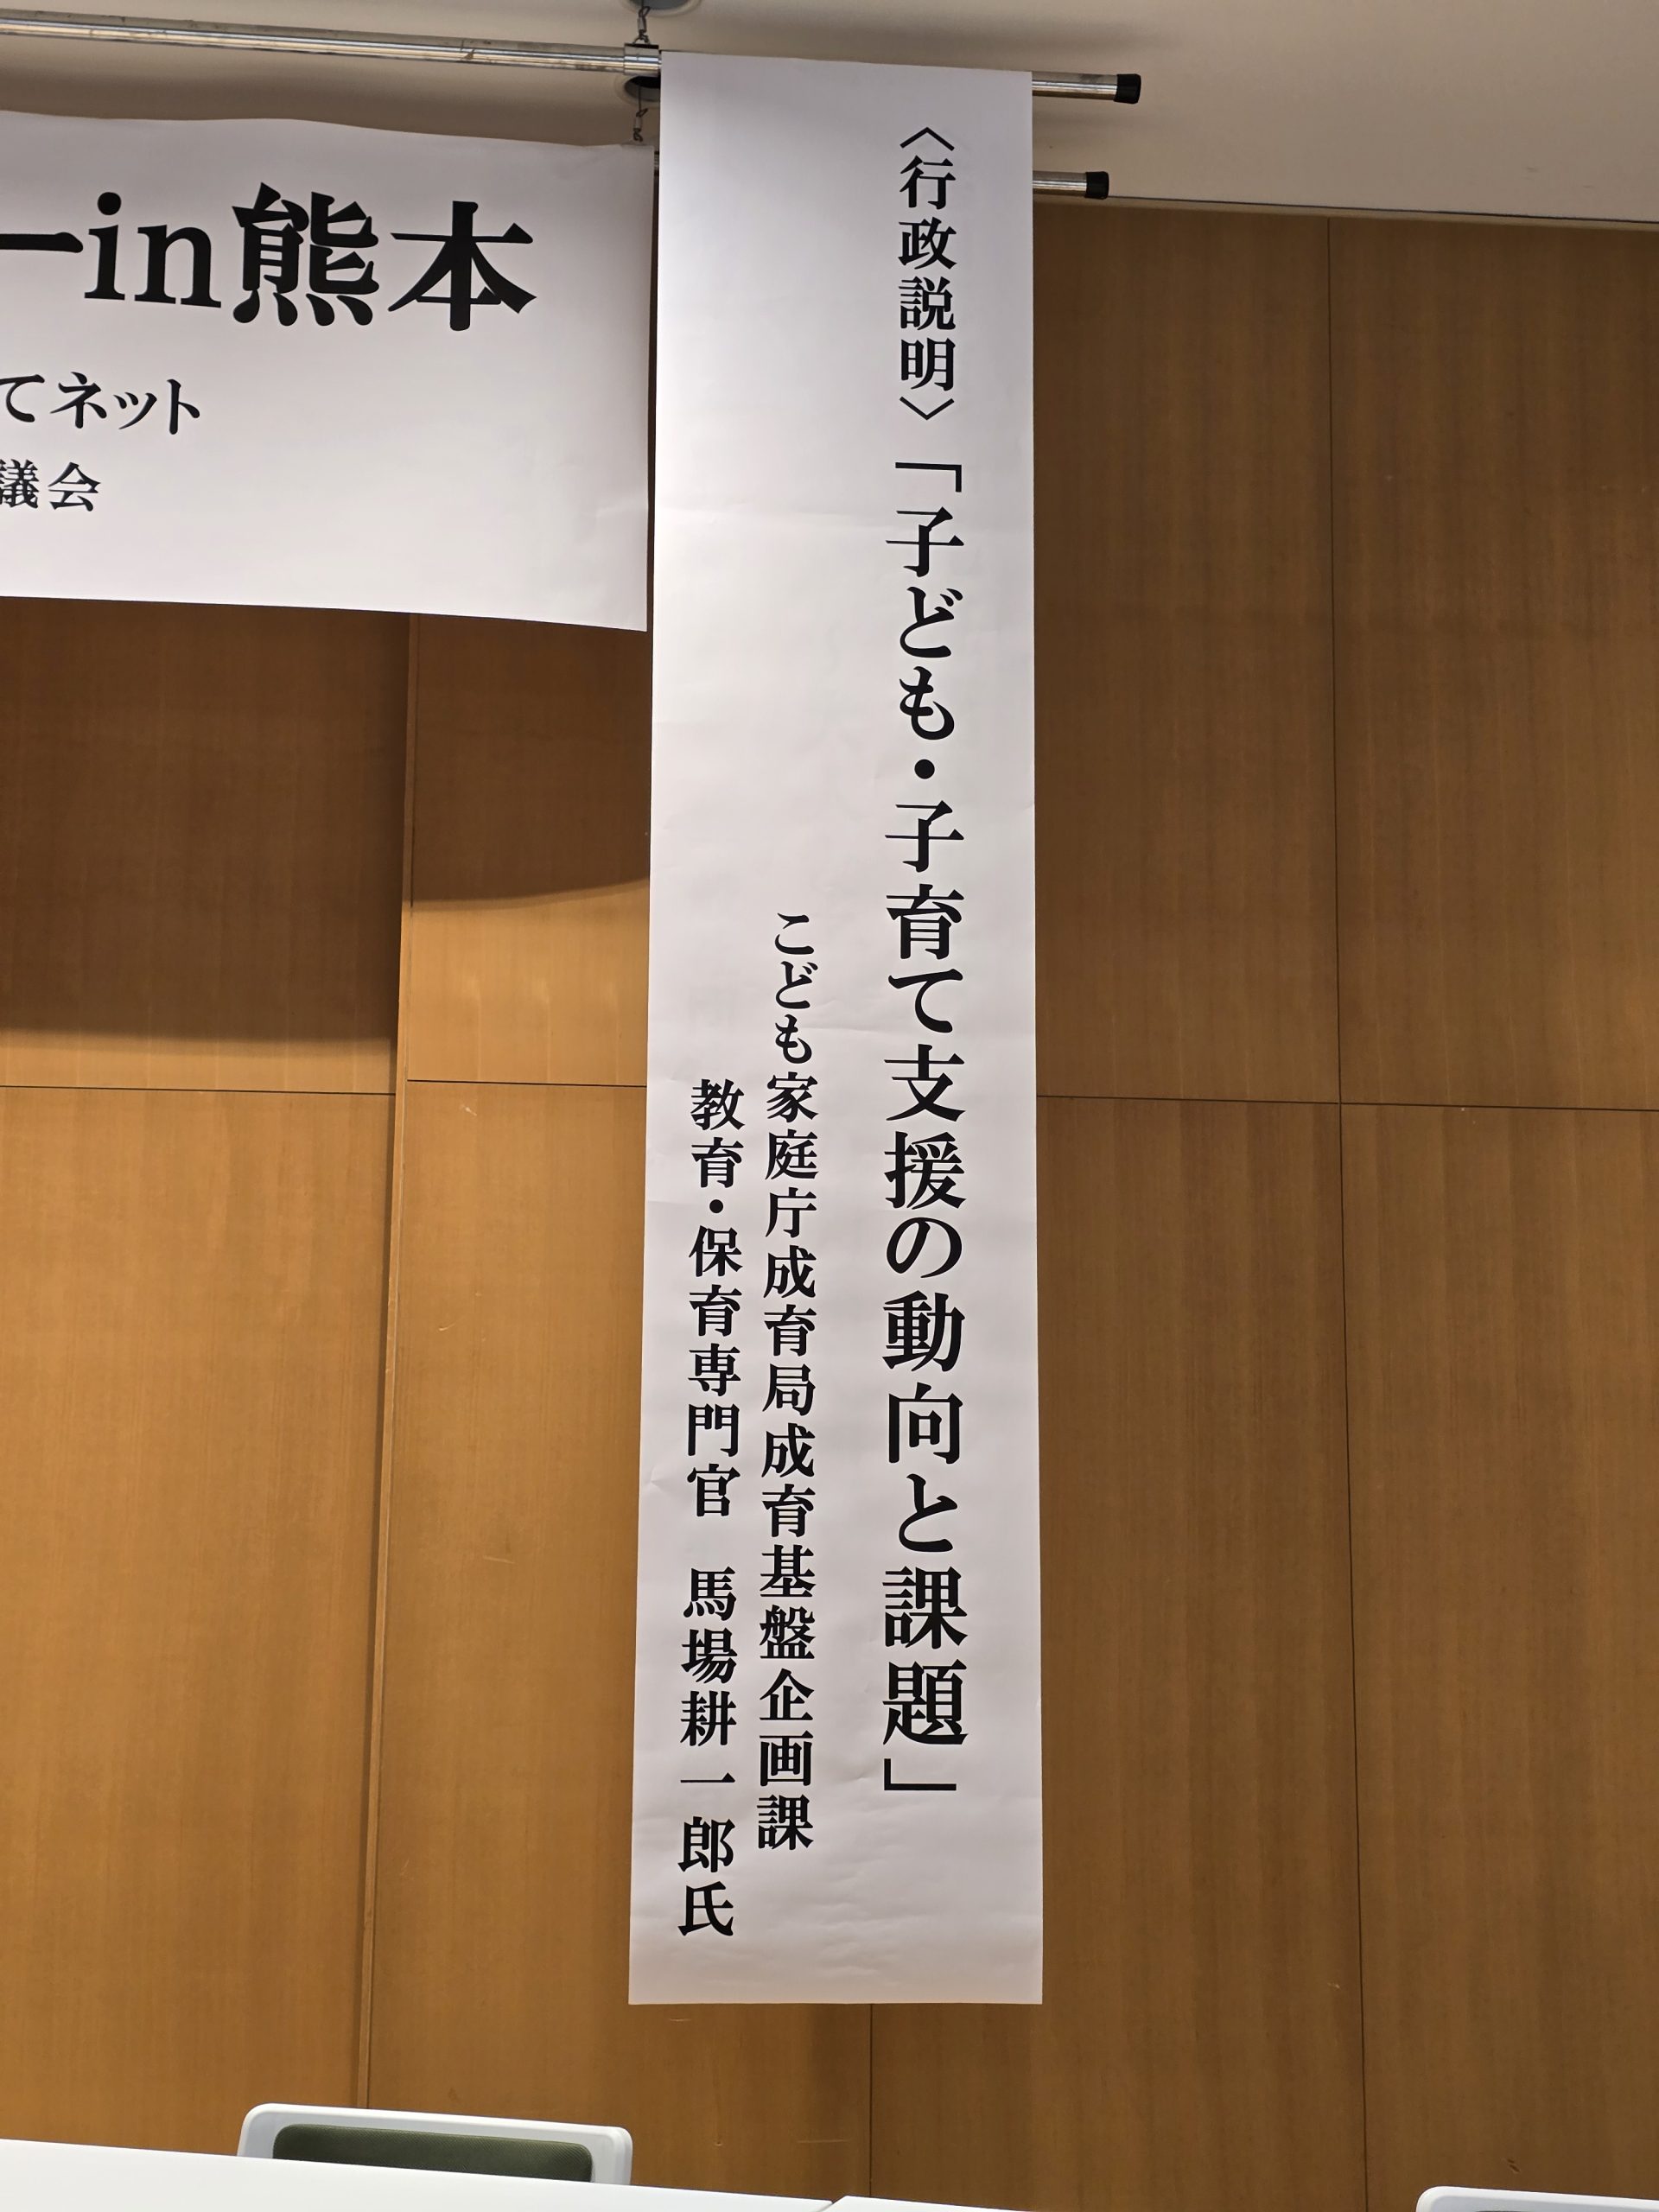 ーin熊本
てネット
議会
〈行政説明〉「子ども・子育て支援の動向と課題」
こども家庭庁成育局成育基盤企画課
教育・保育専門官 馬場耕一郎氏